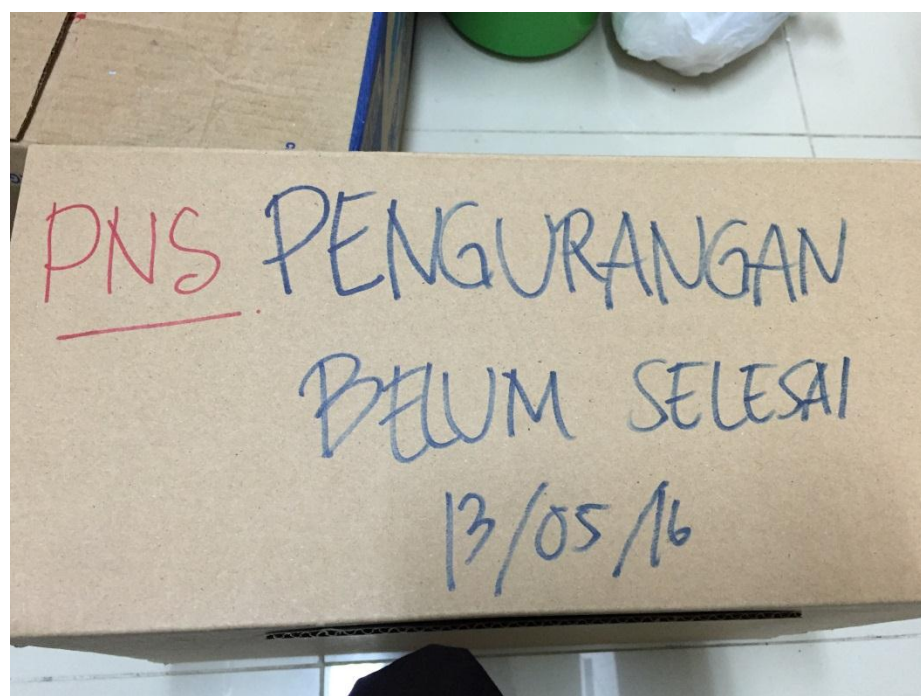 PNS PENGURANGAN
BELUM SELESAI
13/05/16